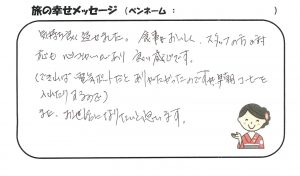 旅の幸せメッセージ（ペンネーム：　　　）
気持ち良く過せました。食事もおいしく、スタッフの方の対
応も心づかいがあり良い感じです。
(できれば電気ポットだとありがたかったのですが早朝コーヒーを
入れたりするので)
また、お世話になりたいと思います。